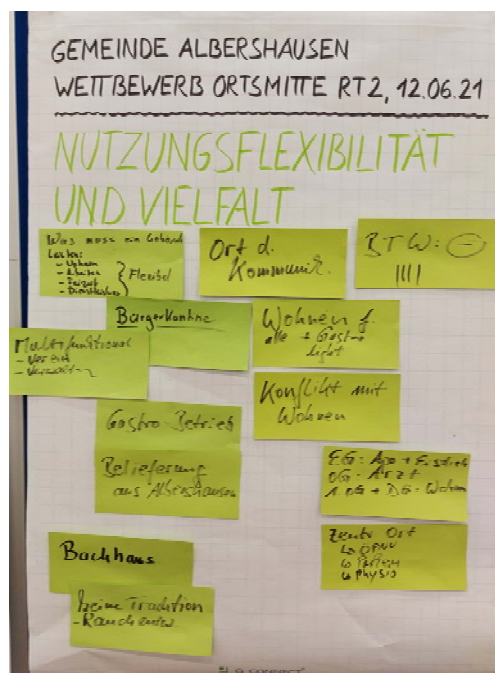 GEMEINDE ALBERSHAUSEN
WETTBEWERB ORTSMITTE RT2, 12.06.21
NUTZUNGSFLEXIBILITÄT
UND VIELFALT
Was muss ein Gebäude
Leisten:
- Wohnen
- Arbeiten
- Freizeit
- Dienstleister
Flexibel
Ort d.
Kommunik.
BTW:
||||
Bürgerkantine
Multifunktional
- Verein
Wohnen f.
alle + Gastro
light
Konflikt mit
Wohnen
Gastro-Betrieb
Belieferung
aus Albershausen
EG: Apo +
OG: Arzt
1. OG + DG: Wohnen
Zentr Ort
↳ ÖPNV
↳ Physio
Backhaus
keine Tradition